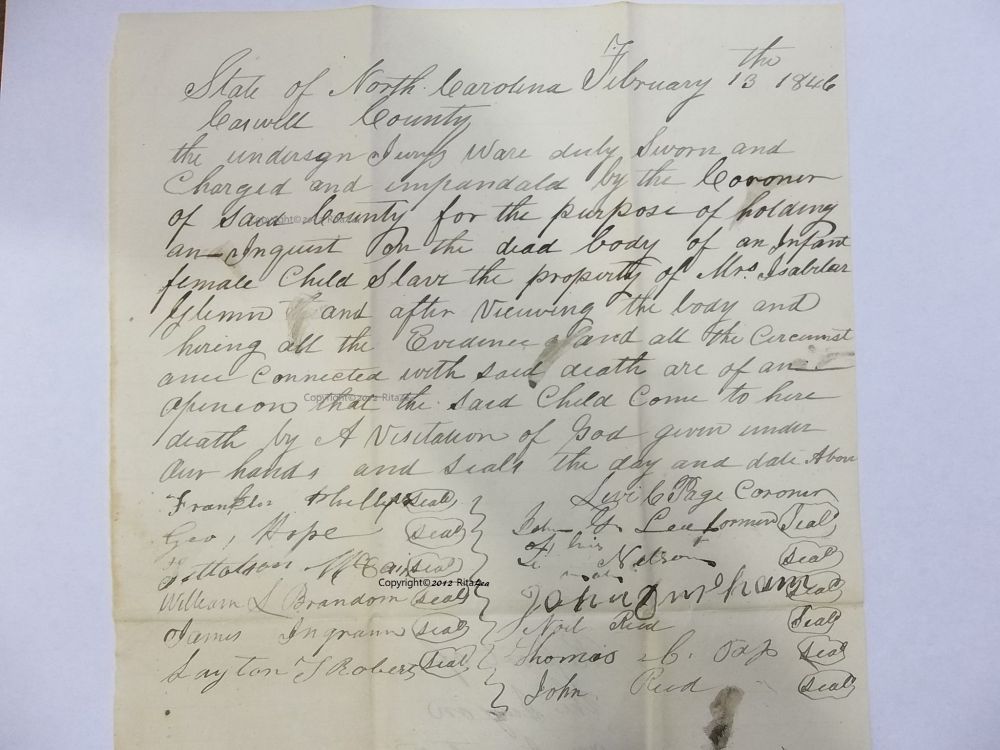 State of North Carolina February 13th 1846
Caswell County
the undersgn Jurys Ware duly Sworn and
Charged and impandald by the Coroner
of said County for the purpose of holding
an Inquist On the dead body of an Infant
female Child Slave the property of Mrs. Isabelar
Glenn and after Vieuwing the body and
hering all the Evidence and all the Circumst
ance Connected with said death are of an
Opineon that the Said Child Come to here
death by A Visitation of God given under
Our hands and Seals the day and date Above
Levi C Page Coroner
Franklin Phelps Seal
Geo, Hope Seal
Tottolson Seal
William S Brandom Seal
James Ingram Seal
Layton T Roberts Seal
John Y Lea formn Seal
his
Nelson Seal
mark
John Seal
Reid Seal
Thomas C. Seal
John Reid Seal
Copyright©2012 RitaLea
Copyright©2012 RitaLea
Copyright©2012 RitaLea